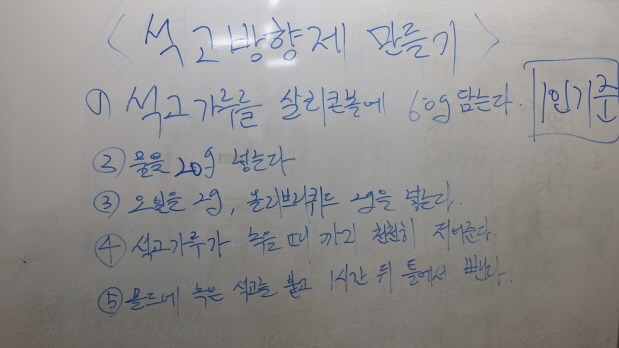 <석고방향제 만들기>
① 석고가루를 살리콘볼에 60g 담는다. 1인기준
② 물을 20g 넣는다
③ 오일을 2g, 올리브리퀴드 2g을 넣는다.
④ 석고가루가 녹을 때 까지 천천히 저어준다.
⑤ 몰드에 녹은 석고를 붓고 1시간 뒤 틀에서 뺀다.